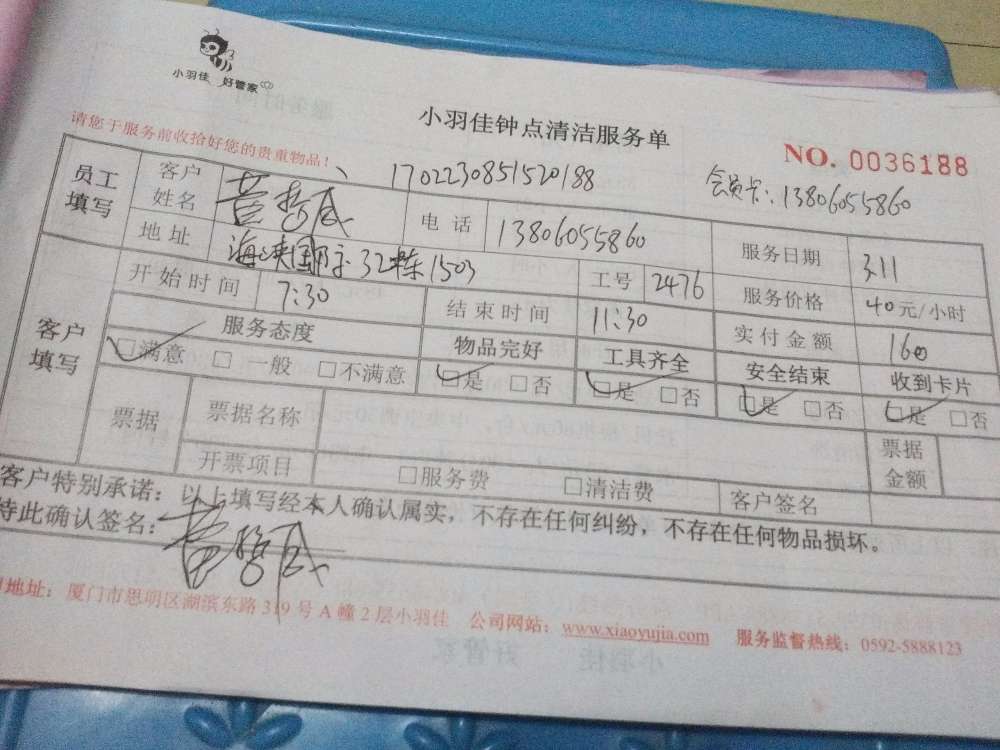 小羽佳 好管家
小羽佳钟点清洁服务单
请您于服务前收拾好您的贵重物品！
NO. 0036188
1702230851520188 会员卡:13806055860
员工填写 客户姓名 电话 13806055860 服务日期 3.11
地址 海峡国际32栋1503 工号 2476 服务价格 40元/小时
客户填写 开始时间 7:30 结束时间 11:30 实付金额 160
服务态度 物品完好 工具齐全 安全结束 收到卡片
☑满意 □一般 □不满意 ☑是 □否 ☑是 □否 ☑是 □否 ☑是 □否
票据 票据名称 票据金额
开票项目 □服务费 □清洁费 客户签名
客户特别承诺：以上填写经本人确认属实，不存在任何纠纷，不存在任何物品损坏。
特此确认签名：
地址：厦门市思明区湖滨东路319号A幢2层小羽佳 公司网站：www.xiaoyujia.com 服务监督热线：0592-5888123